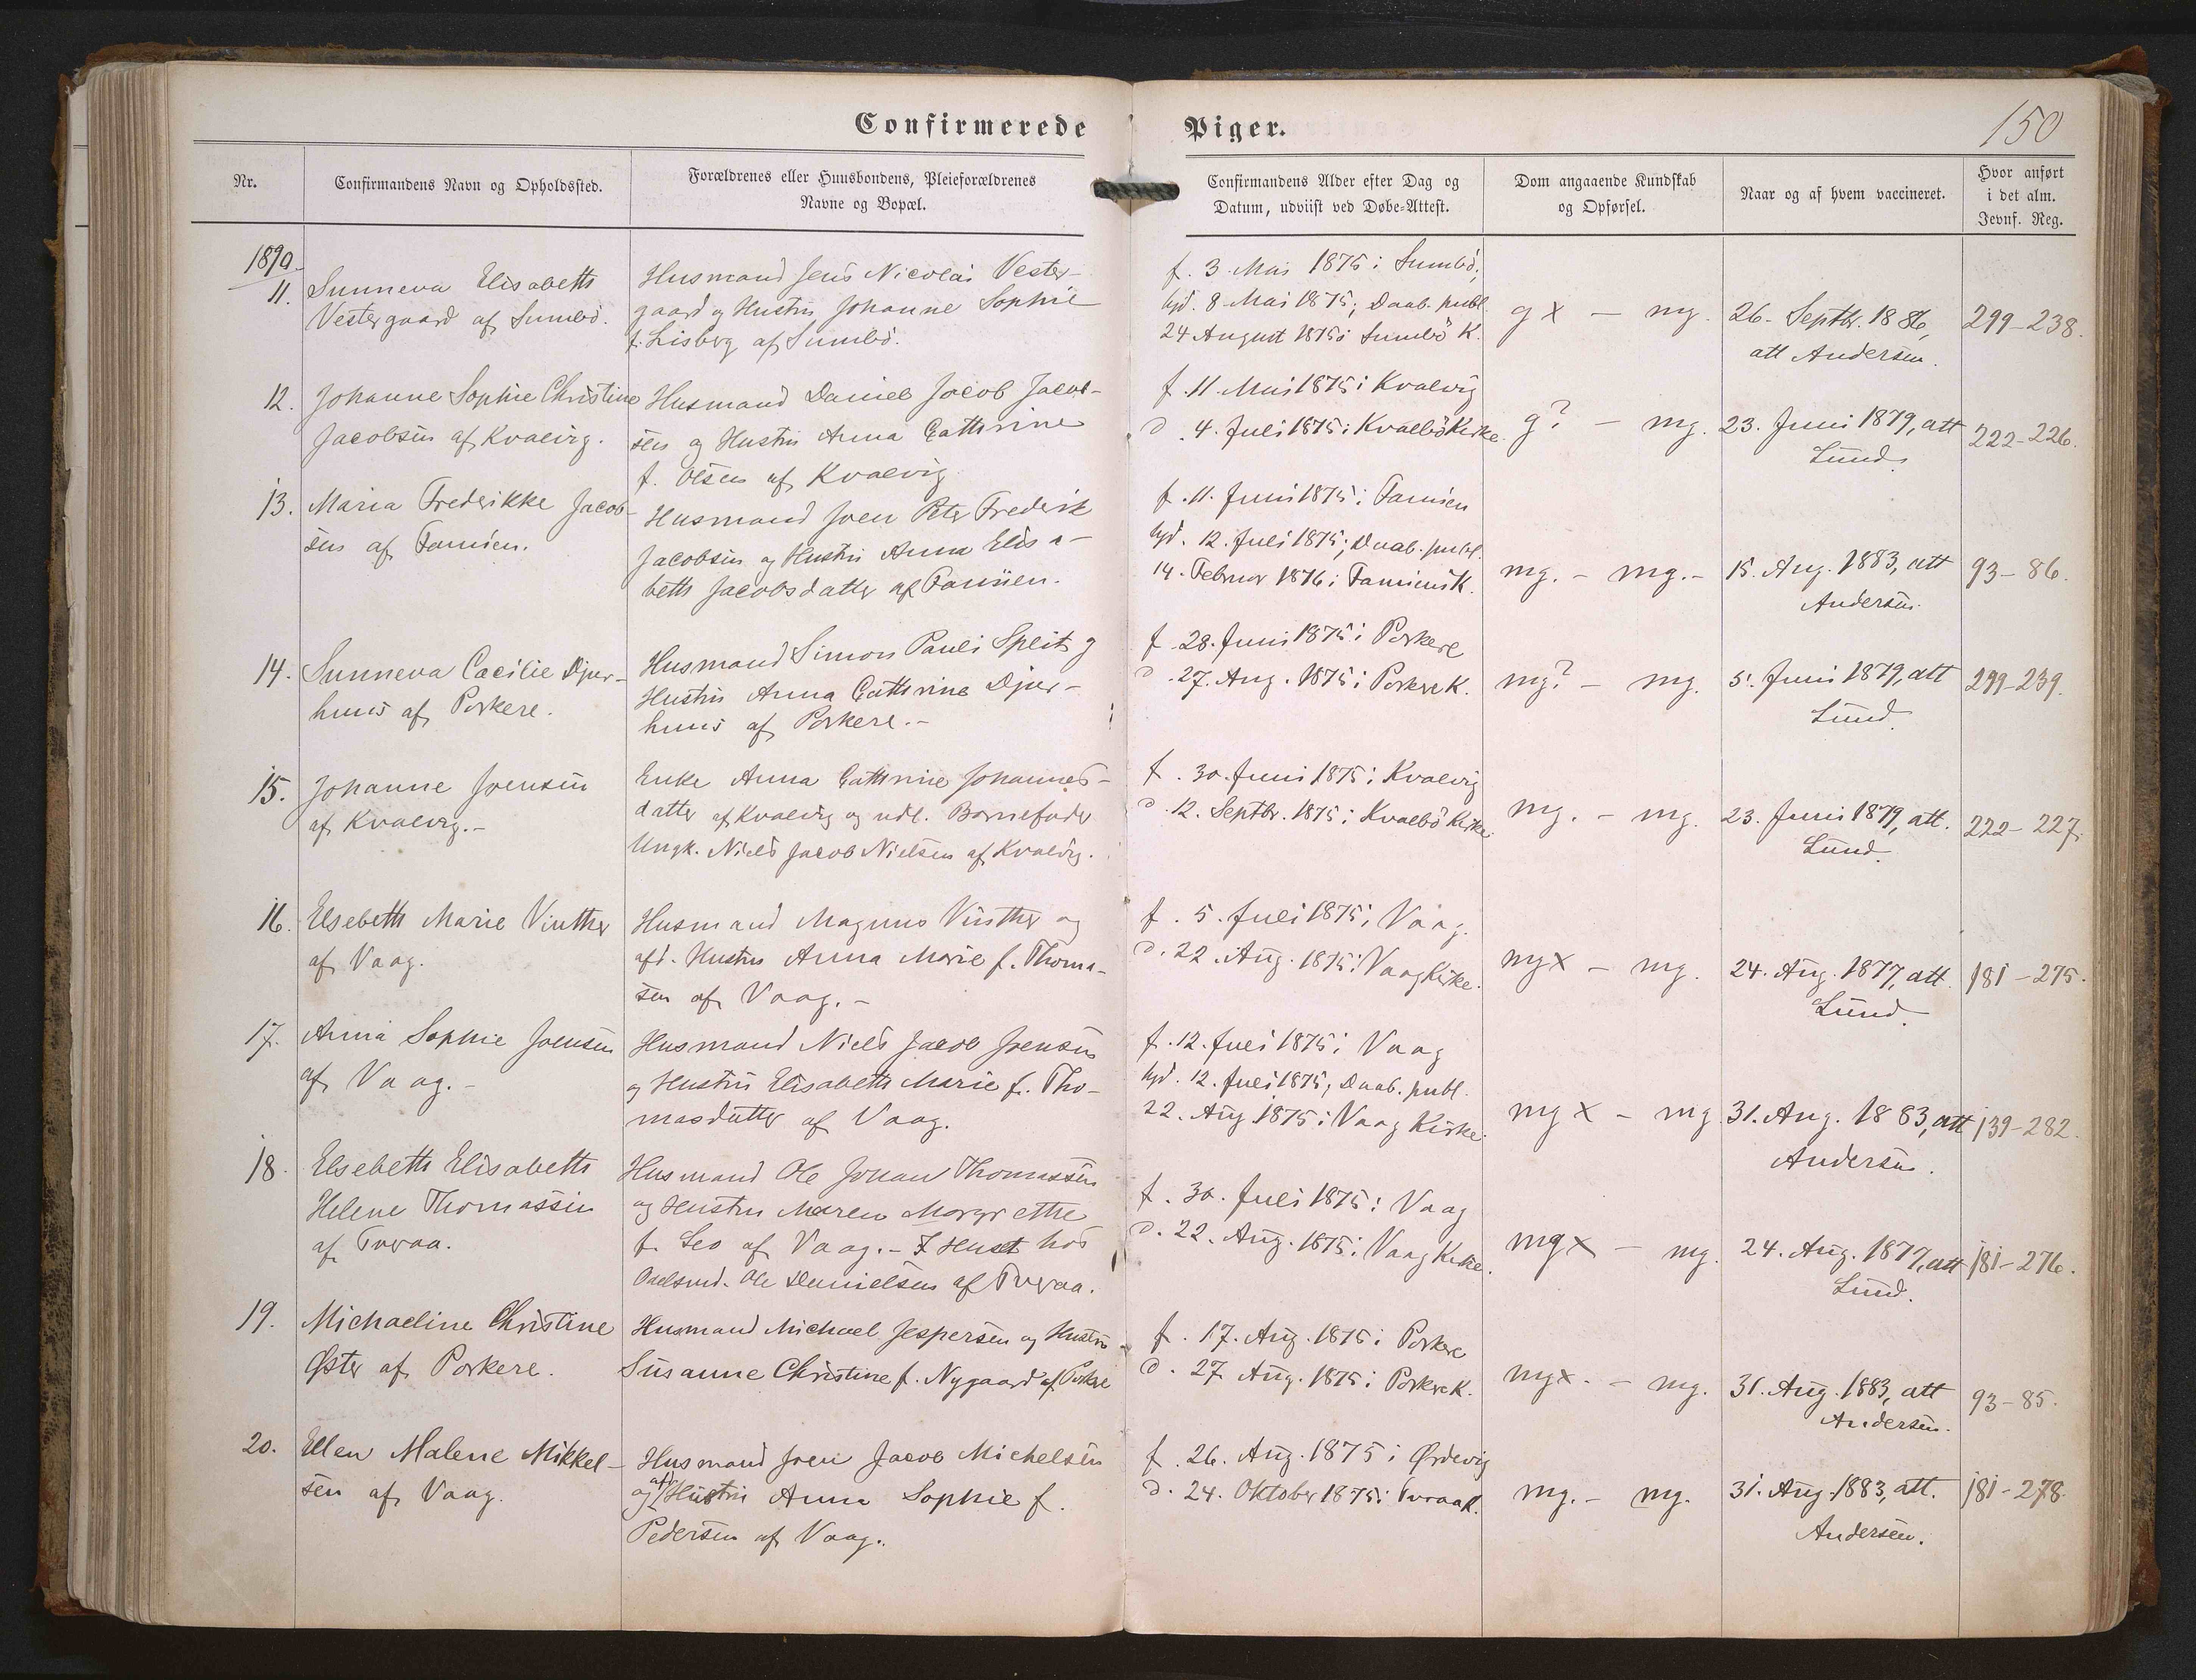 Confirmerede Piger.
150
Nr.
Confirmandens Navn og Opholdssted.
Forældrenes eller Huusbondens, Pleieforældrenes
Navne og Bopæl.
Confirmandens Alder efter Dag og
Datum, udviist ved Døbe-Attest.
Dom angaaende Kundskab
og Opførsel.
Naar og af hvem vaccineret.
Hvor anført
i det alm.
Jevnf. Reg.
1890.
11.
Sunneva Elisabeth
Vestergaard af Sumbö.
Husmand Jens Nicolai Vester-
gaard og Hustru Johanne Sophie
f. Lisberg af Sumbö.
f. 3. Mai 1875 i Sumbö,
hjd. 8. Mai 1875; Daab. publ.
24 August 1875 i Sumbö K.
g x – mg.
26. Septbr. 1886,
att Andersen.
299-238.
12.
Johanne Sophie Christine
Jacobsen af Kvalvig.
Husmand Daniel Jacob Jacob-
sen og Hustru Anna Cathrine
f. Olsen af Kvalvig
f. 11. Mai 1875 i Kvalvig
d. 4. Juli 1875 i Kvalbö Kirke.
g? – mg.
23. Juni 1879, att
Lund.
222-226.
13.
Maria Frederikke Jacob-
sen af Famien.
Husmand Joen Peter Frederik
Jacobsen og Hustru Anna Elisa-
beth Jacobsdatter af Famien.
f. 11. Juni 1875 i Famien
hjd. 12. Juli 1875; Daab. publ.
14. Februar 1876 i Famien K.
mg. – mg. –
15. Aug. 1883, att
Andersen.
93-86.
14.
Sunneva Cæcilie Djur-
huus af Porkere.
Husmand Simon Pauli Spleit og
Hustru Anna Cathrine Djur-
huus af Porkere. –
f 28. Juni 1875 i Porkere
d. 27. Aug. 1875 i Porkere K.
mg? – mg.
5. Juni 1879, att
Lund.
299-239.
15.
Johanne Joensen
af Kvalvig. –
Enke Anna Cathrine Johannes-
datter af Kvalvig og udl. Barnefader
Ungk. Niels Jacob Nielsen af Kvalvig.
f. 30. Juni 1875 i Kvalvig
d. 12. Septbr. 1875 i Kvalbö Kirke.
mg. – mg.
23. Juni 1879, att.
Lund.
222-227.
16.
Elsebeth Marie Vinther
af Vaag.
Husmand Magnus Vinther og
afd. Hustru Anna Marie f. Thoma-
sen af Vaag. –
f. 5. Juli 1875 i Vaag.
d. 22. Aug. 1875 i Vaag Kirke.
mgx – mg.
24. Aug. 1877, att.
Lund.
181-275.
17.
Anna Sophie Joensen
af Vaag. –
Husmand Niels Jacob Joensen
og Hustru Elisabeth Marie f. Tho-
masdatter af Vaag.
f. 12. Juli 1875 i Vaag
hjd. 12. Juli 1875; Daab. publ.
22. Aug 1875 i Vaag Kirke.
mg x – mg.
31. Aug. 1883, att
Andersen.
139-282.
18.
Elsebeth Elisabeth
Helene Thomassen
af Tveraa.
Husmand Ole Johan Thomassen
og Hustru Maren Margrethe
f. Leo af Vaag. – I Huset hos
Odelsmd. Ole Danielsen af Tveraa.
f. 30. Juli 1875 i Vaag
d. 22. Aug. 1875 i Vaag Kirke.
mgx – mg.
24. Aug. 1877, att
Lund.
181-276.
19.
Michaeline Christine
Øster af Porkere.
Husmand Michael Jespersen og Hustru
Susanne Christine f. Nygaard af Porkere
f. 17. Aug. 1875 i Porkere
d. 27 Aug. 1875 i Porkere K.
mgx. – mg.
31. Aug. 1883, att
Andersen.
93-85.
20.
Ellen Malene Mikkel-
sen af Vaag.
Husmand Joen Jacob Michelsen
og afd Hustru Anna Sophie f.
Pedersen af Vaag.
f. 26. Aug. 1875 i Ørdevig
d. 24. Oktober 1875 i Tveraa K.
mg. – mg.
31. Aug. 1883, att.
Andersen.
181-278.